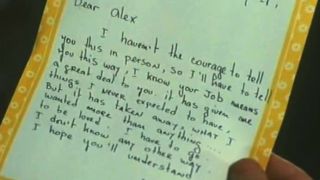 Dear Alex
I haven't the courage to tell
you this in person, so I'll have to tell
you this way; I know your Job means
a great deal to you. it has given me
things I never expected to have,
But it has taken away; what I
wanted more than anything....
to be loved. I have to go.
I don't know any other way.
I hope you'll understand